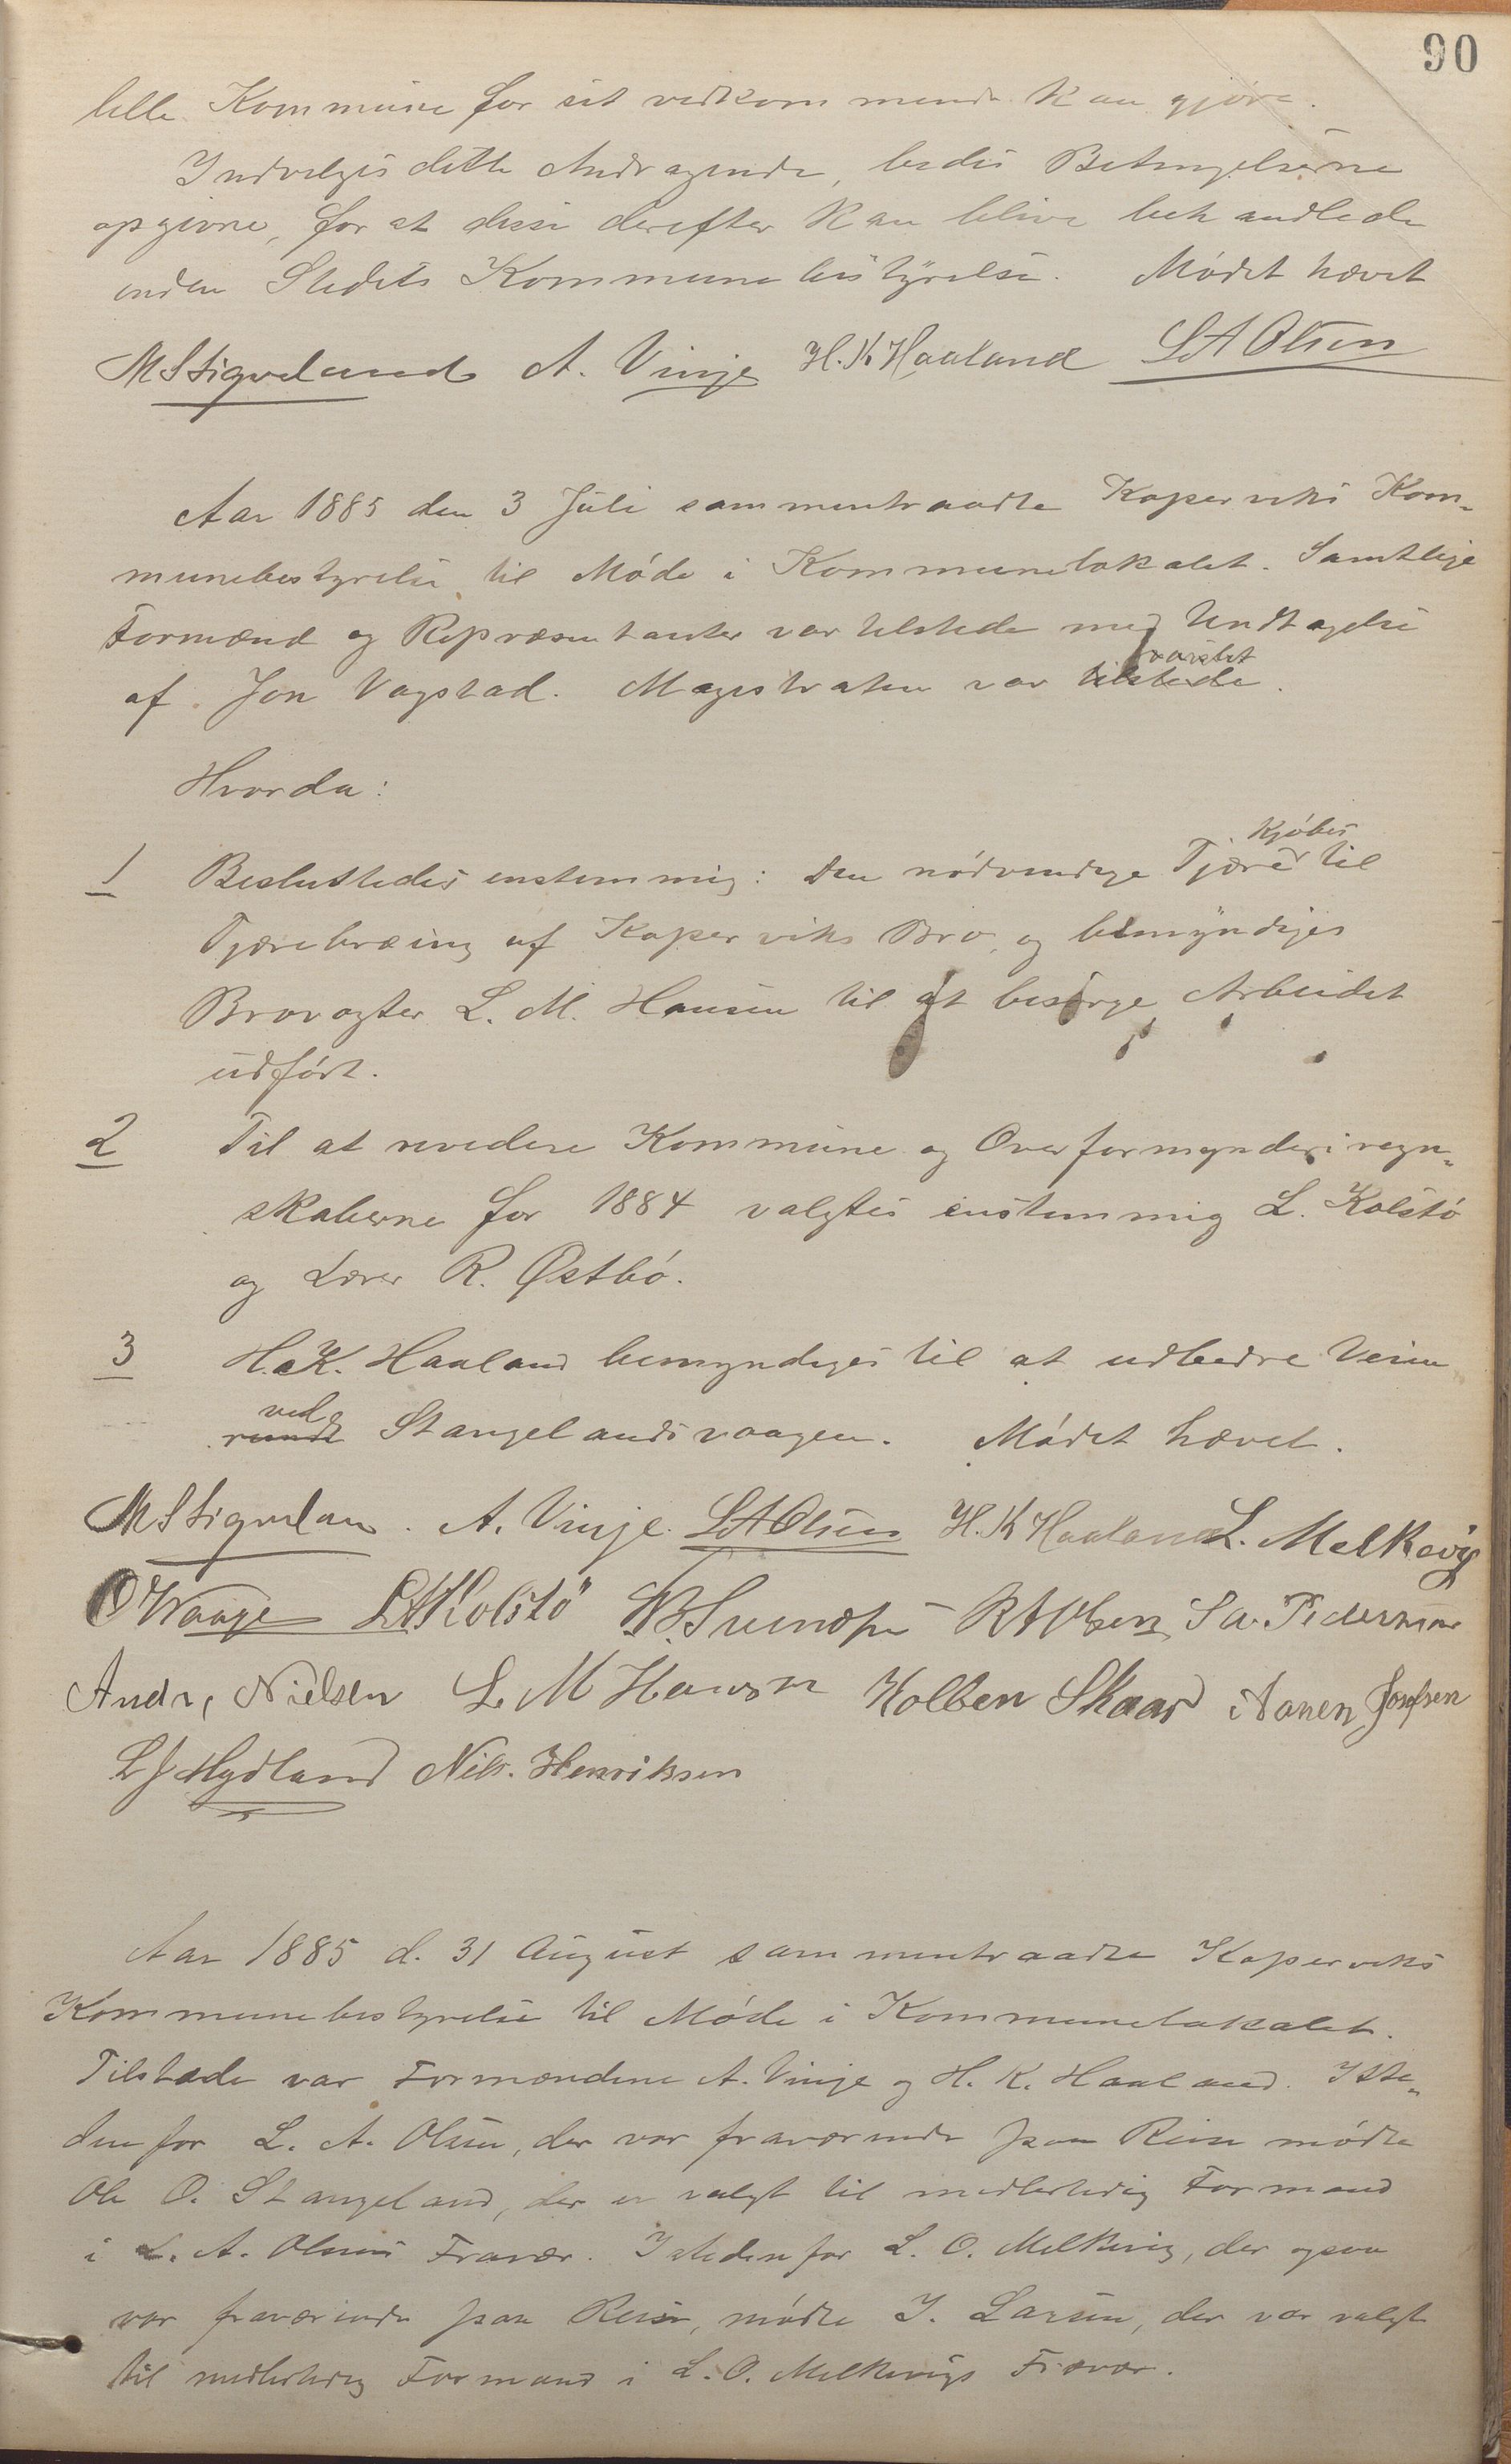 90
lille Kommune for sit vedkommende kan gjøre.
Indvilges dette Andragende, bedes Betingelserne
opgivne, for at disse derefter kan blive behandlede
inden Stedets Kommunebestyrelse. Mødet hævet
M S Sigveland A. Vinje H. K Haaland L A Olsen
Aar 1885 den 3 Juli sammentraadte Koperviks Kom-
munebestyrelse til Møde i Kommunelokalet. Samtlige
Formænd og Repræsentanter var tilstede med Undtagelse
varslet
af Jon Vagstad. Magistraten var tilstede.
Hvorda:
Kjøbes
1 Besluttedes enstemmig: Den nødvendige Tjære til
Tjærebræing af Koperviks Bro, og bemyndiges
Brovogter L. M. Hansen til at besørge Arbeidet
udført.
2 Til at revidere Kommune og Overformynderiregn-
skaberne for 1884 valgtes enstemmig L. Kolstø
og Lærer R. Østbø.
3 H. K. Haaland bemyndiges til at udbedre Veien
ved
rundt Stangelandsvaagen. Mødet hævet.
M S Sigveland. A. Vinje. L A Olsen H. K Haaland L. Melkevig
O Waage L A Kolstö R A Olsen S a. Pedersen
Andr, Nielsen L M Hansen Kolben Skaar Aanen Josefsen
L J Hydland Nils. Henriksen
Aar 1885 d. 31 August sammentraadte Koperviks
Kommunebestyrelse til Møde i Kommunelokalet.
Tilstede var Formændene A. Vinje og H. K. Haaland. Iste-
denfor L. A. Olsen, der var fraværende paa Reise mødte
Ole O. Stangeland, der er valgt til midlertidig Formand
i L. A. Olsens Fravær. Istedenfor L. O. Melkevig, der ogsaa
var fraværende paa Reise, mødte I. Larsen, der var valgt
til midlertidig Formand i L. O. Melkevigs Fravær.